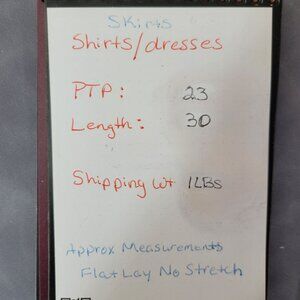 Skirts
Shirts/dresses
PTP: 23
Length: 30
Shipping Wt 1LBs
Approx Measurements
Flat Lay No Stretch